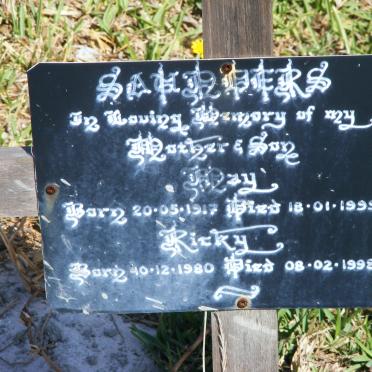 SAUNDERS
In Loving Memory of my
Mother & Son
May
Born 20·05·1917 Died 18·01·1999
Ricky
Born 10·12·1980 Died 08·02·1998